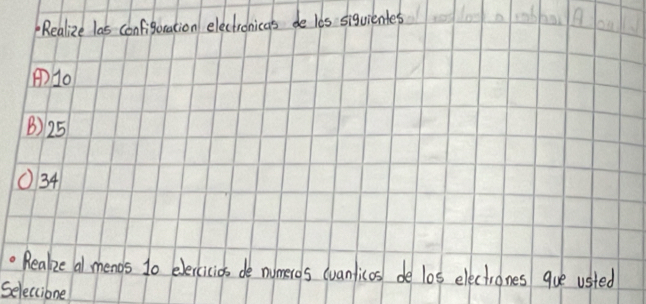 • Realize las configuracion electronicas de los siguientes
A) 10
B) 25
C) 34
• Realize al menos 10 ejercicios de numeros cuanticos de los electrones que usted
Seleccione